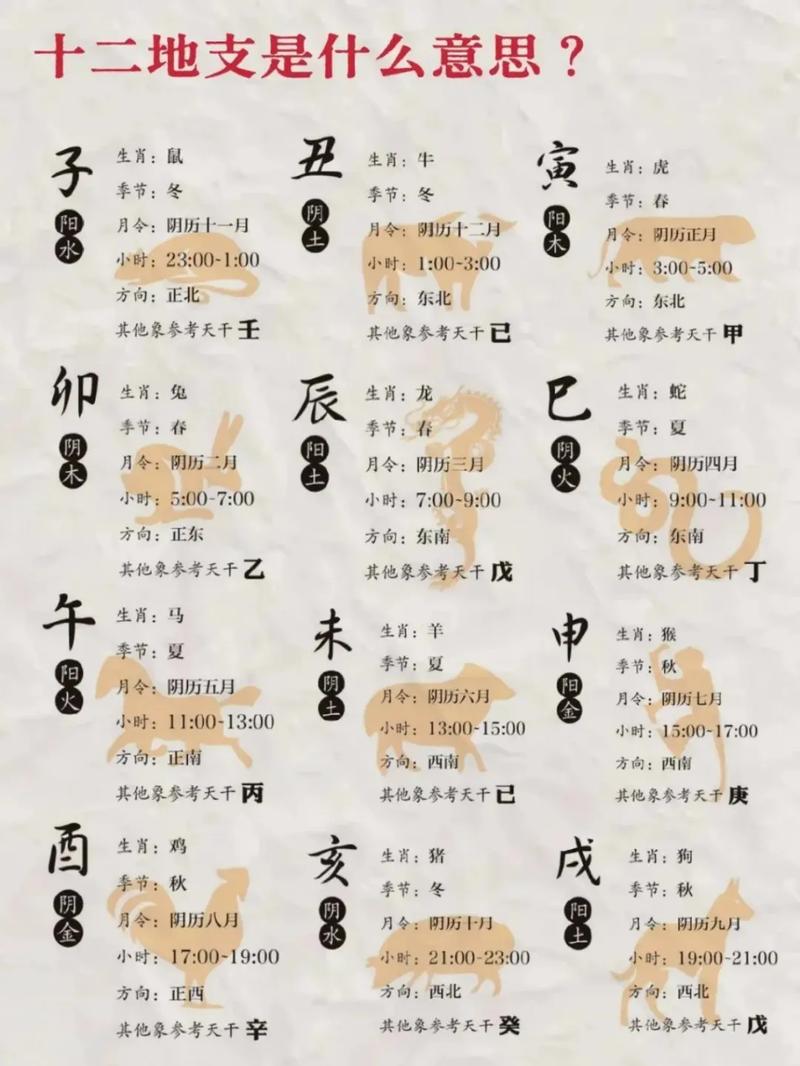 十二地支是什么意思？
子
阳水
生肖：鼠
季节：冬
月令：阴历十一月
小时：23:00~1:00
方向：正北
其他象参考天干壬
丑
阴土
生肖：牛
季节：冬
月令：阴历十二月
小时：1:00~3:00
方向：东北
其他象参考天干己
寅
阳木
生肖：虎
季节：春
月令：阴历正月
小时：3:00~5:00
方向：东北
其他象参考天干甲
卯
阴木
生肖：兔
季节：春
月令：阴历二月
小时：5:00~7:00
方向：正东
其他象参考天干乙
辰
阳土
生肖：龙
季节：春
月令：阴历三月
小时：7:00~9:00
方向：东南
其他象参考天干戊
巳
阴火
生肖：蛇
季节：夏
月令：阴历四月
小时：9:00~11:00
方向：东南
其他象参考天干丁
午
阳火
生肖：马
季节：夏
月令：阴历五月
小时：11:00~13:00
方向：正南
其他象参考天干丙
未
阴土
生肖：羊
季节：夏
月令：阴历六月
小时：13:00~15:00
方向：西南
其他象参考天干己
申
阳金
生肖：猴
季节：秋
月令：阴历七月
小时：15:00~17:00
方向：西南
其他象参考天干庚
酉
阴金
生肖：鸡
季节：秋
月令：阴历八月
小时：17:00~19:00
方向：正西
其他象参考天干辛
亥
阴水
生肖：猪
季节：冬
月令：阴历十月
小时：21:00~23:00
方向：西北
其他象参考天干癸
戌
阳土
生肖：狗
季节：秋
月令：阴历九月
小时：19:00~21:00
方向：西北
其他象参考天干戊